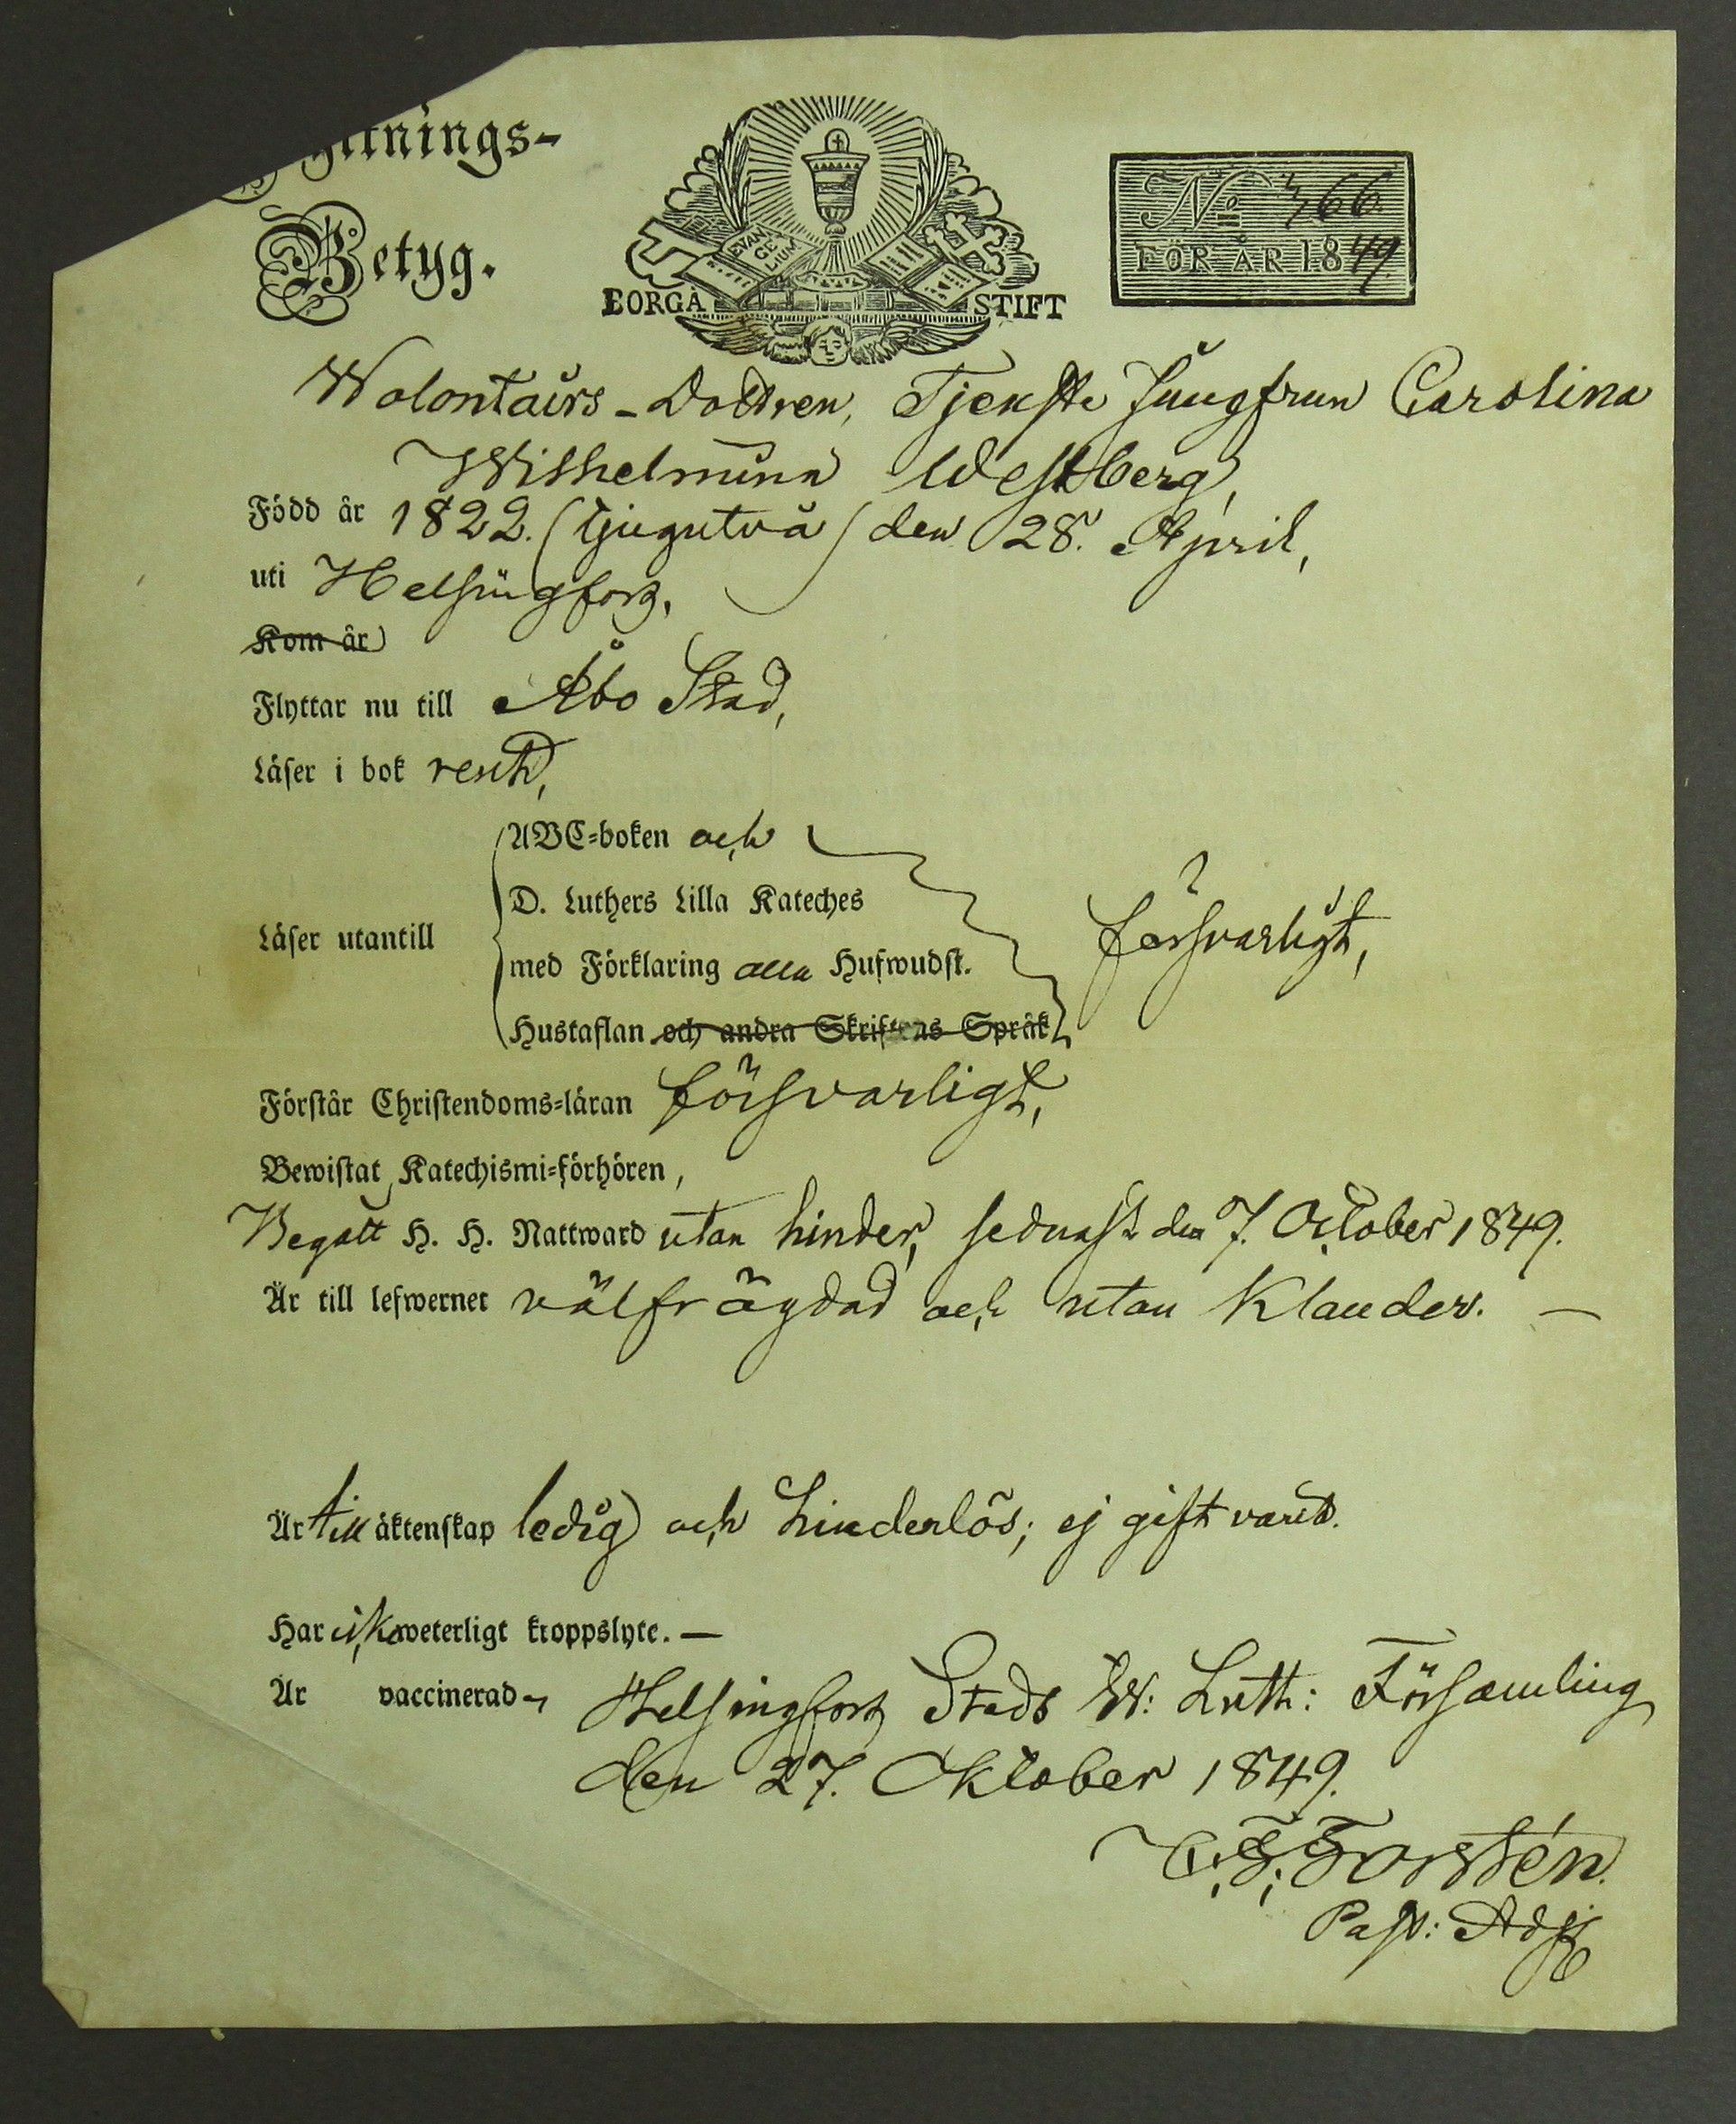 Flyttnings-
Betyg.
EVAN
GE
LIUM
BORGÅ STIFT
No 466.
FÖR ÅR 1849.
Wolontairs-Dottren, Tjenste Jungfrun Carolina
Wilhelmina Westberg,
Född år 1822. (tjugutvå) den 28. April,
uti Helsingfors,
Kom år
Flyttar nu till Åbo Stad,
Läser i bok rent,
ABC-boken och
D. Luthers Lilla Kateches
Läser utantill försvarligt,
med Förklaring alla Hufwudst.
Hustaflan och andra Skriftens Språk
Förstår Christendoms-läran försvarligt,
Bewistat Katechismi-förhören,
Begått H. H. Nattward utan hinder, sednast den 7. October 1849.
Är till lefwernet välfrägdad och utan klander. —
Är till äktenskap ledig och hinderlös; ej gift varit.
Har icke weterligt kroppslyte. —
Är vaccinerad - Helsingfors Stads Sv: Luth: Församling
den 27. Oktober 1849.
C. F. Forstén.
Past: Adj.